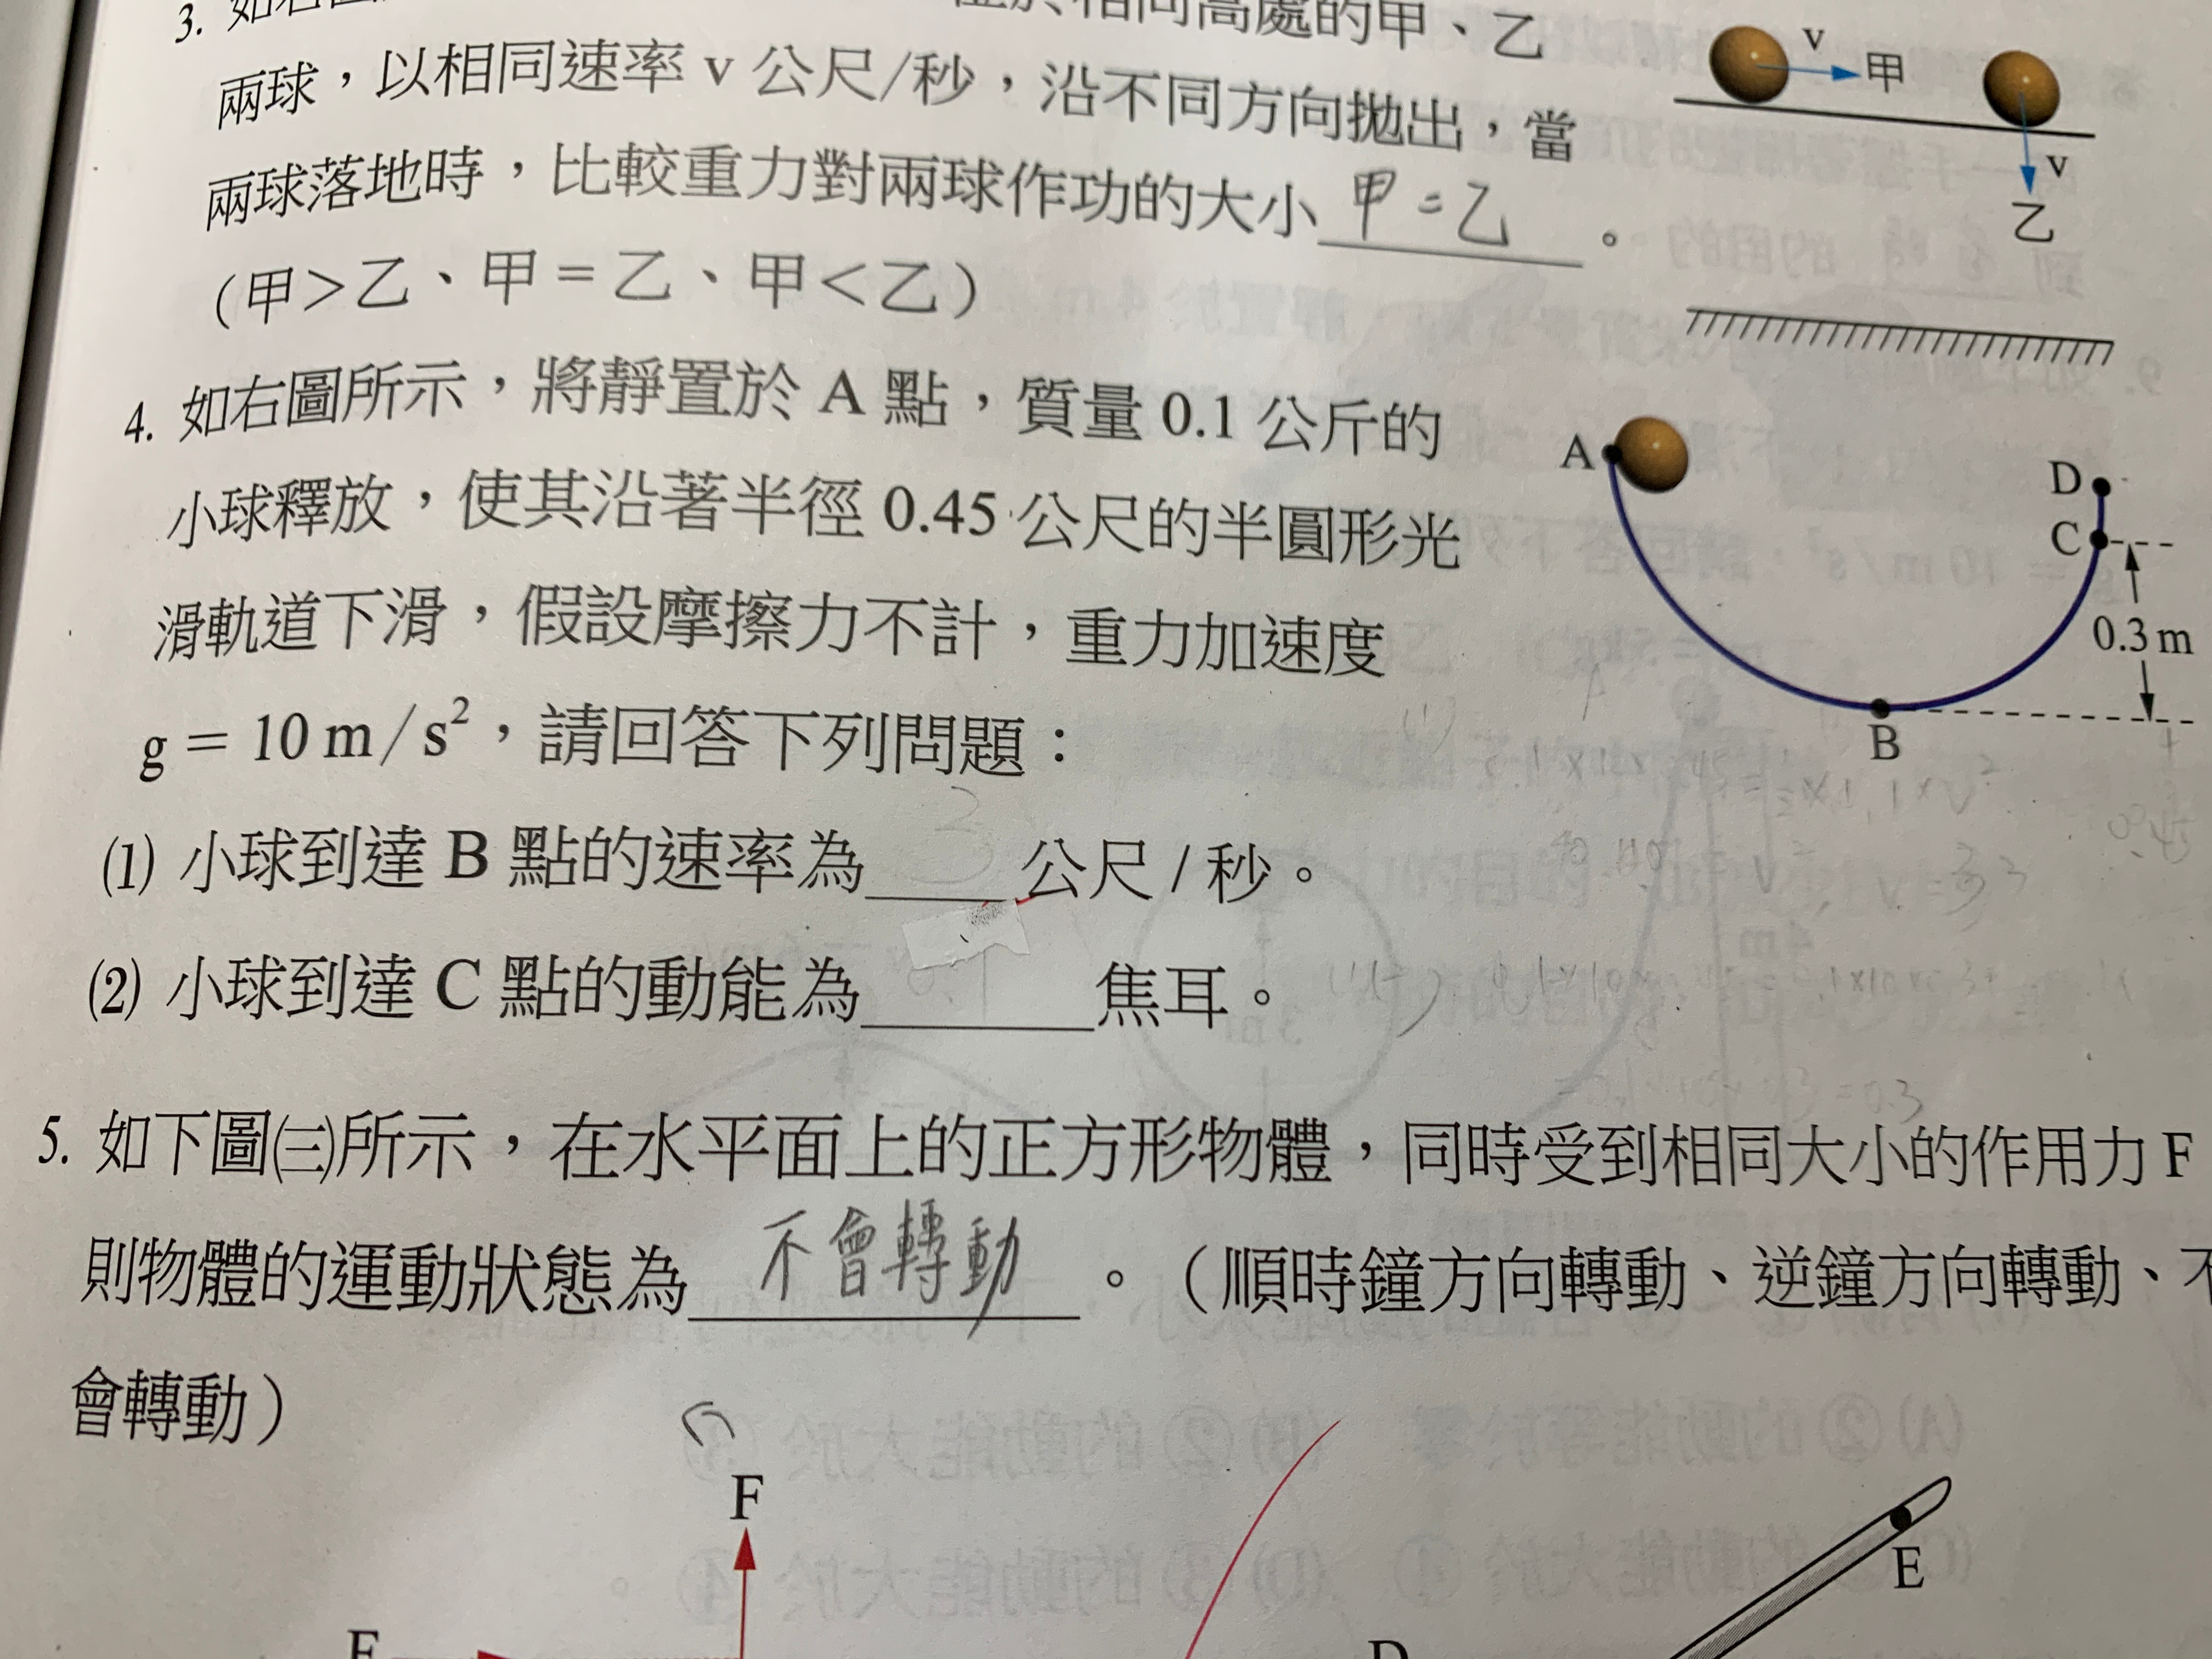 3. 如右
相同高處的甲、乙
兩球，以相同速率 v 公尺/秒，沿不同方向拋出，當
兩球落地時，比較重力對兩球作功的大小 甲=乙 。
(甲>乙、甲=乙、甲<乙)
v
甲
v
乙
4. 如右圖所示，將靜置於 A 點，質量 0.1 公斤的
小球釋放，使其沿著半徑 0.45 公尺的半圓形光
滑軌道下滑，假設摩擦力不計，重力加速度
g = 10 m/s²，請回答下列問題：
A
D
C
0.3 m
B
(1) 小球到達 B 點的速率為 3 公尺/秒。
(2) 小球到達 C 點的動能為 焦耳。
5. 如下圖(三)所示，在水平面上的正方形物體，同時受到相同大小的作用力 F
則物體的運動狀態為 不會轉動 。(順時鐘方向轉動、逆鐘方向轉動、不
會轉動)
F
F
E
D